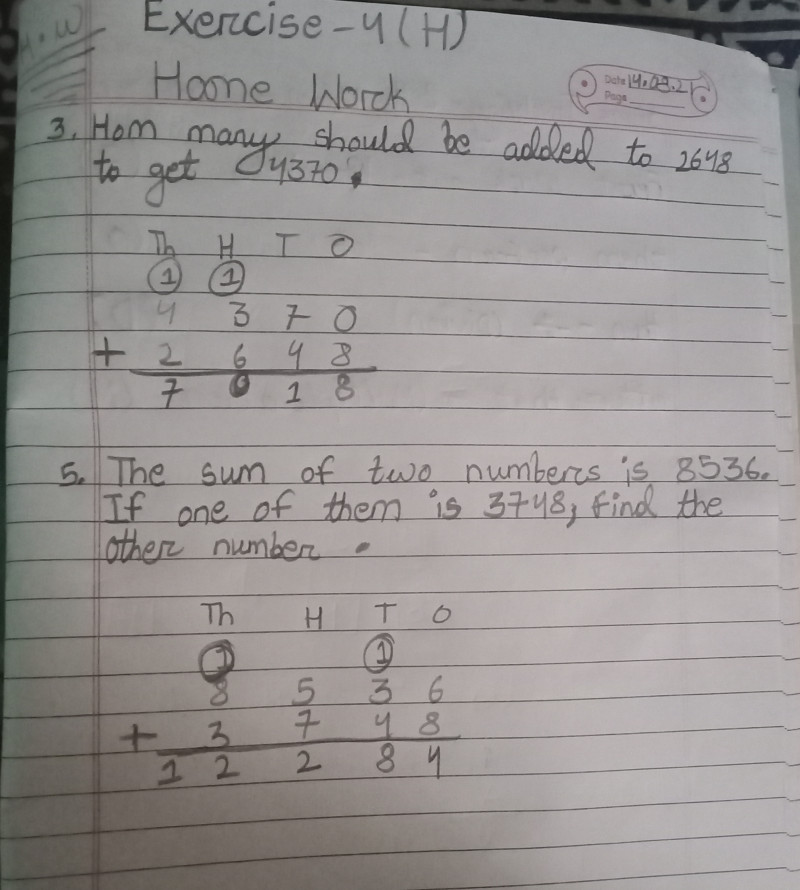 H.W
Exercise-4(H)
Home Work
Date 14.03.2
Page
3. Hom many should be added to 2648
to get 4370.
Th H T O
1 1
4 3 7 0
+ 2 6 4 8
7 0 1 8
5. The sum of two numbers is 8536.
If one of them is 3748, find the
other number.
Th H T O
1 1
8 5 3 6
+ 3 7 4 8
1 2 2 8 4